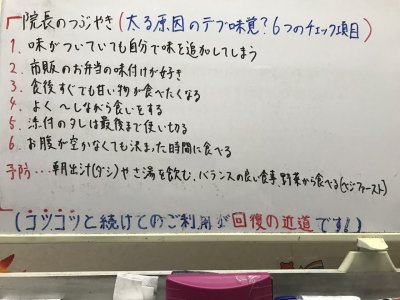 院長のつぶやき(太る原因のデブ味覚?6つのチェック項目)
1. 味がついていても自分で味を追加してしまう
2. 市販のお弁当の味付けが好き
3. 食後すぐでも甘い物が食べたくなる
4. よく〜しながら食いをする
5. 添付のタレは最後まで使い切る
6. お腹が空かなくても決まった時間に食べる
予防…朝出汁(ダシ)やさ湯を飲む、バランスの良い食事、野菜から食べる(ベジファースト)
(コツコツと続けてのご利用が回復の近道です!)